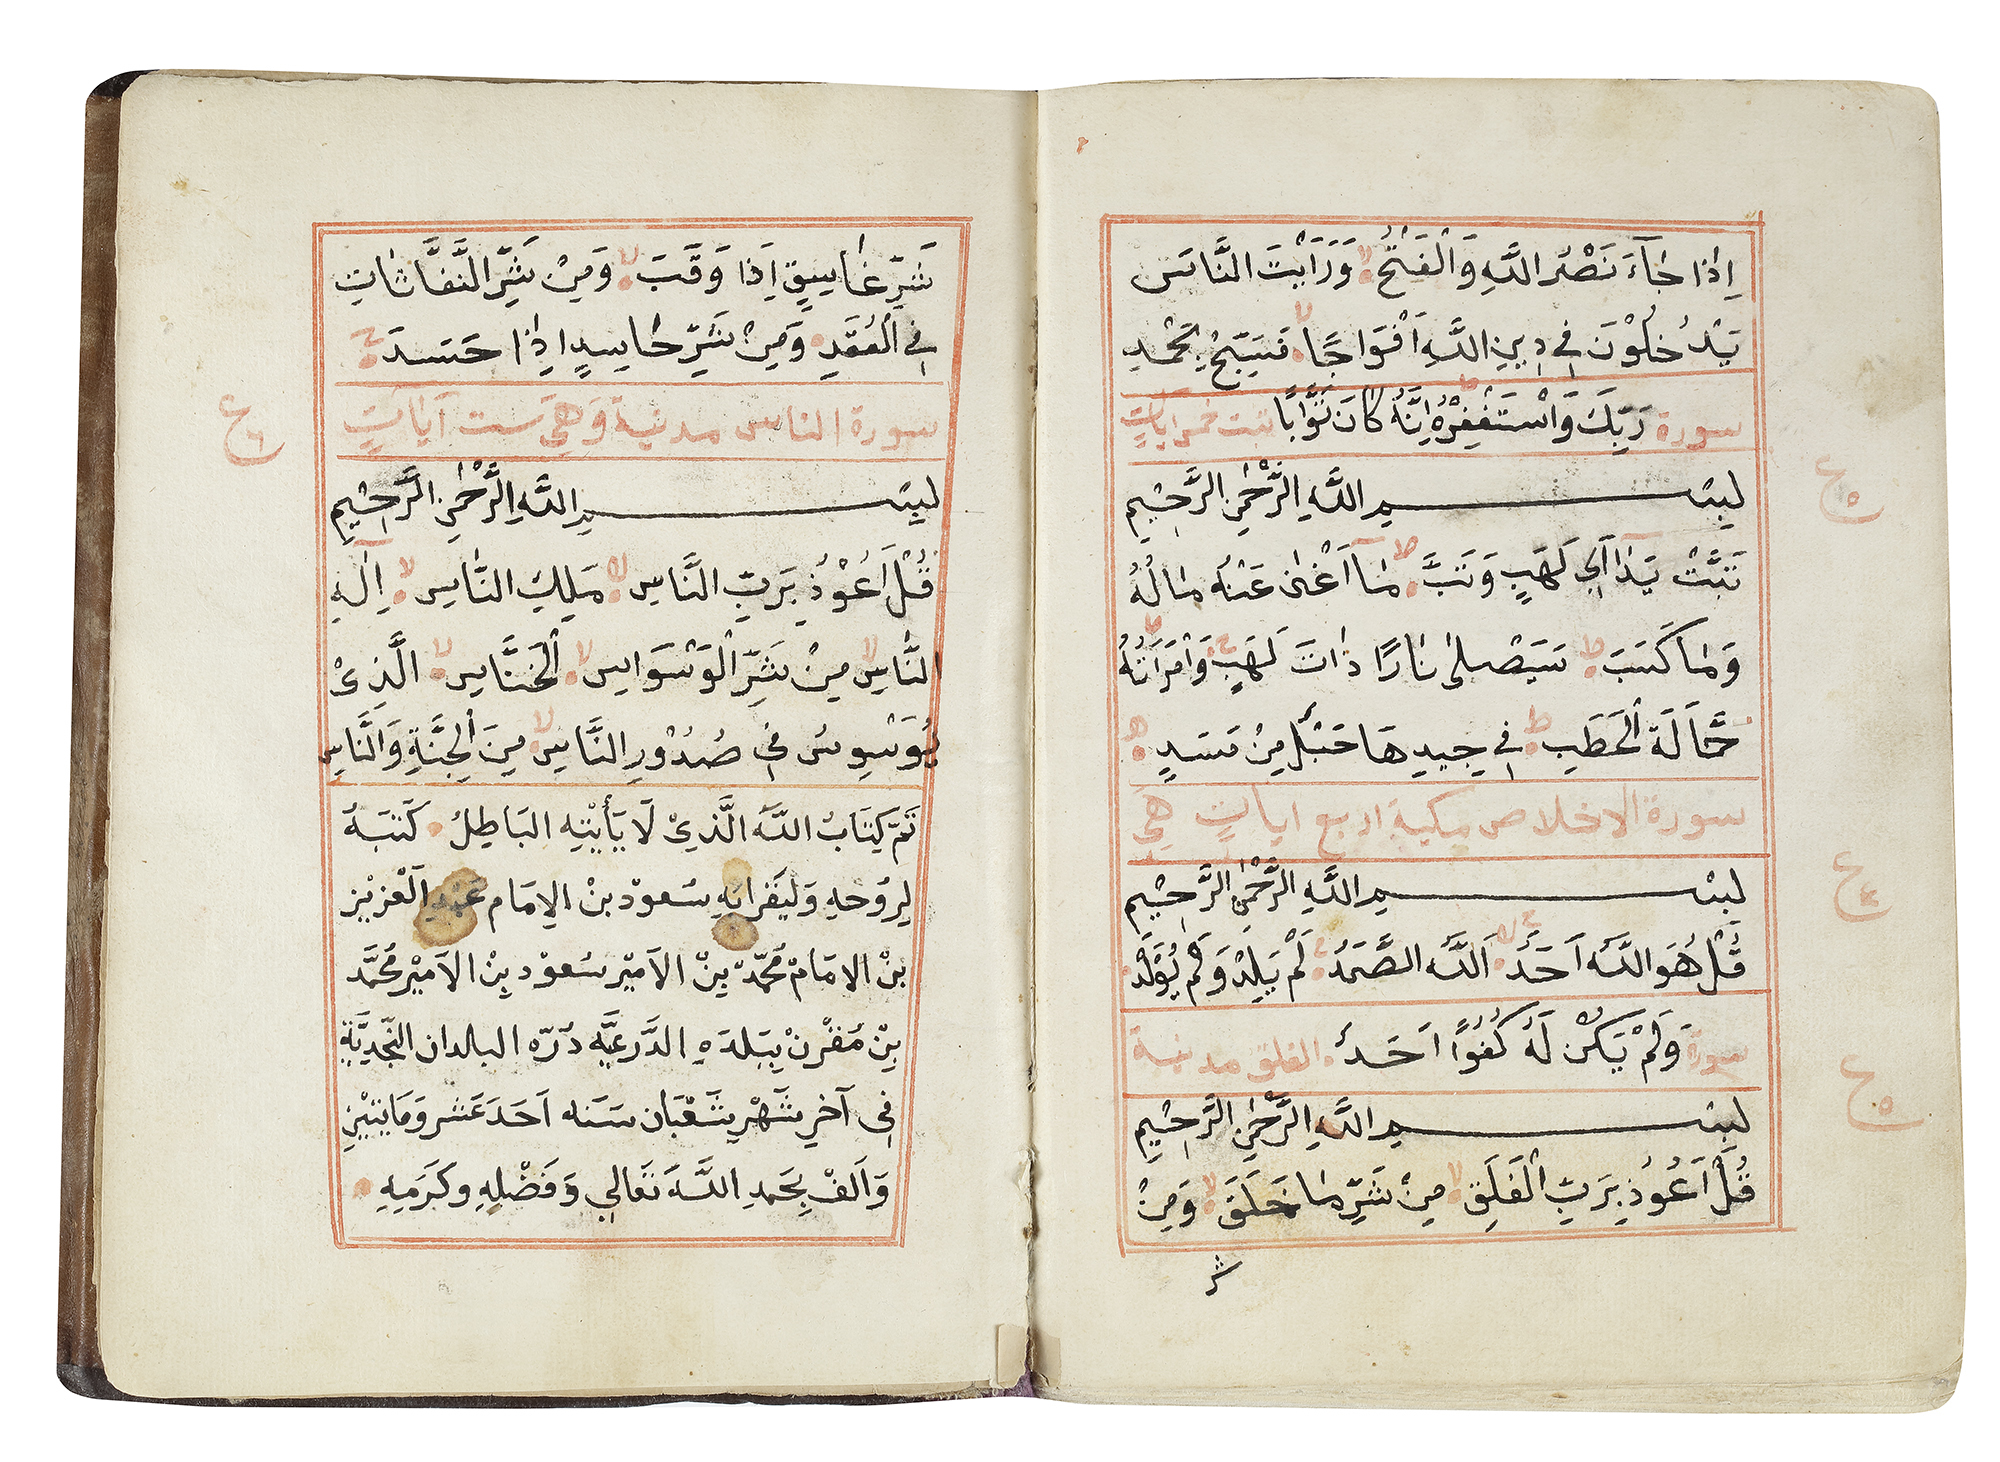 اِذَا جَآءَ نَصْرُ اللَّهِ وَالْفَتْحُ لا وَرَاَيْتَ النَّاسَ
يَدْخُلُوْنَ فِي دِيْنِ اللَّهِ اَفْوَاجًا لا فَسَبِّحْ بِحَمْدِ
سورة رَبِّكَ وَاسْتَغْفِرْهُ ط اِنَّهُ كَانَ تَوَّابًا تبت خمس ايات
بِسْــــــمِ اللَّهِ الرَّحْمٰنِ الرَّحِيْمِ
ع ٥
تَبَّتْ يَدَآ اَبِي لَهَبٍ وَتَبَّ ط مَآ اَغْنٰى عَنْهُ مَالُهُ
وَمَا كَسَبَ ط سَيَصْلٰى نَارًا ذَاتَ لَهَبٍ ج وَامْرَاَتُهُ ط
حَمَّالَةَ الْحَطَبِ ط فِي جِيدِهَا حَبْلٌ مِنْ مَسَدٍ
سورة الاخلاص مكية اربع ايات هي
بِسْــــــمِ اللَّهِ الرَّحْمٰنِ الرَّحِيْمِ
ع ٤
قُلْ هُوَ اللَّهُ اَحَدٌ ج اَللَّهُ الصَّمَدُ ج لَمْ يَلِدْ وَلَمْ يُوْلَدْ
سورة وَلَمْ يَكُنْ لَهُ كُفُوًا اَحَدٌ الفلق مدنية
ع ٥
بِسْــــــمِ اللَّهِ الرَّحْمٰنِ الرَّحِيْمِ
قُلْ اَعُوْذُ بِرَبِّ الْفَلَقِ لا مِنْ شَرِّ مَا خَلَقَ لا وَمِنْ
شر
شَرِّ غَاسِقٍ اِذَا وَقَبَ لا وَمِنْ شَرِّ النَّفَّاثَاتِ
فِي الْعُقَدِ وَمِنْ شَرِّ حَاسِدٍ اِذَا حَسَدَ ج
سورة الناس مدنية وَهِيَ ست آيات
ع ٦
بِسْــــــمِ اللَّهِ الرَّحْمٰنِ الرَّحِيْمِ
قُلْ اَعُوْذُ بِرَبِّ النَّاسِ لا مَلِكِ النَّاسِ لا اِلٰهِ
النَّاسِ لا مِنْ شَرِّ الْوَسْوَاسِ لا الْخَنَّاسِ لا الَّذِيْ
يُوَسْوِسُ فِي صُدُوْرِ النَّاسِ لا مِنَ الْجِنَّةِ وَالنَّاسِ
تَمَّ كِتَابُ اللَّهِ الَّذِيْ لَا يَأْتِيْهِ البَاطِلُ كَتَبَهُ
لِرُوْحِهِ وَلِيَقْرَا بِهِ سُعود بنْ الاِمَام عَبْدِ الْعَزِيْز
بنْ الامَامْ مُحَمَّدْ بِنْ الاَمِيْر سُعوْد بِنْ الاَمِيْر مُحَمَّد
بِنْ مُقْرِنْ بِبَلَدِهِ الدَّرْعِيَّه دُرّه البلدان النَّجْدِيَّةِ
فِي آخِرِ شَهْرِ شَعْبَان سَنَه اَحَدَ عَشر وَمَايتَيْنِ
وَاَلفْ بِحَمدِ اللَّهِ تَعَالي وَفَضْلِهِ وكَرَمِهِ